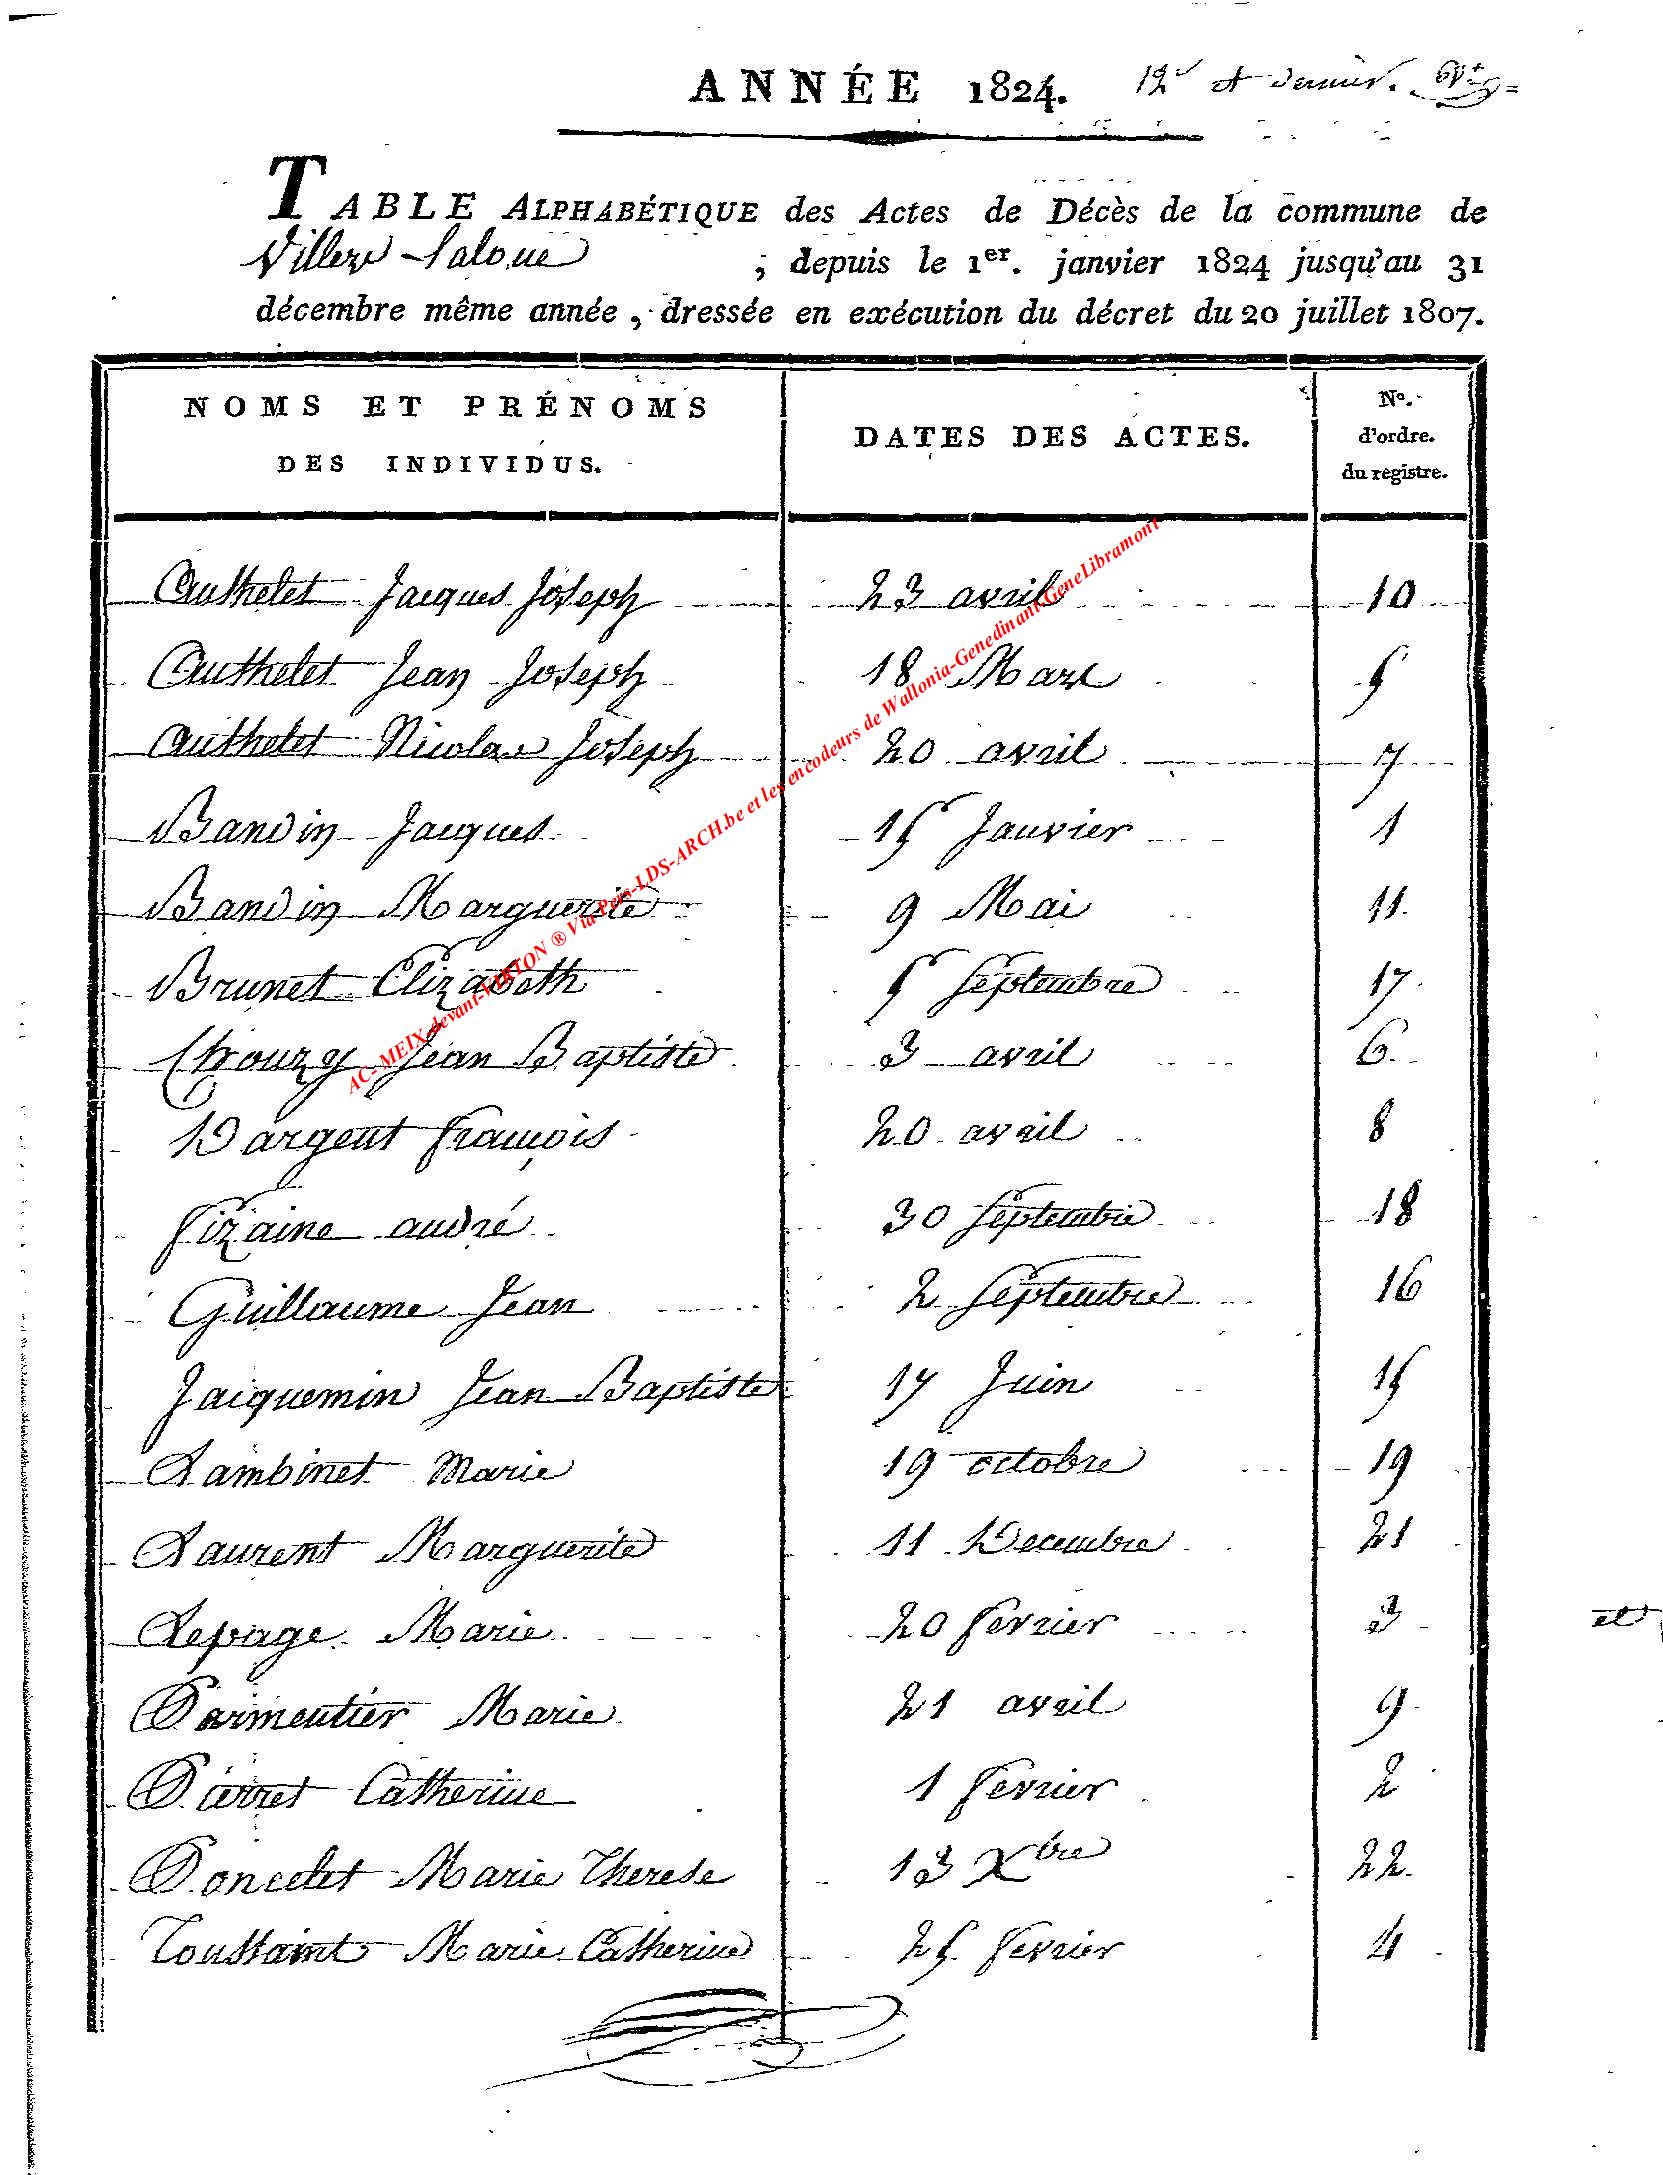 ANNÉE 1824. 12e et dernier.
TABLE ALPHABÉTIQUE des Actes de Décès de la commune de
Villers Laloue , depuis le 1er. janvier 1824 jusqu'au 31
décembre même année, dressée en exécution du décret du 20 juillet 1807.
NOMS ET PRÉNOMS
DES INDIVIDUS.
DATES DES ACTES.
No.
d'ordre.
du registre.
Authelet Jacques Joseph 23 avril 10
Authelet Jean Joseph 18 Mars 5
Authelet Nicolas Joseph 20 avril 7
Bandin Jacques 15 Janvier 1
Bandin Marguerite 9 Mai 11
Brunet Elizabeth 5 Septembre 17
Chouzy Jean Baptiste 3 avril 6
Dargent François 20 avril 8
Fizaine andré 30 Septembre 18
Guillaume Jean 2 Septembre 16
Jacquemin Jean Baptiste 17 Juin 15
Lambinet Marie 19 octobre 19
Laurent Marguerite 11 Decembre 21
Lepage Marie 20 fevrier 3
Parmentier Marie 21 avril 9
Pierret Catherine 1 fevrier 2
Poncelet Marie Therese 13 Xbre 22
Toussaint Marie Catherine 25 fevrier 4
AC-MEIX-devant-VIRTON ® Via Pers-LDS-ARCH.be et les encodeurs de Wallonia-Genedinant-GeneLibramont
et